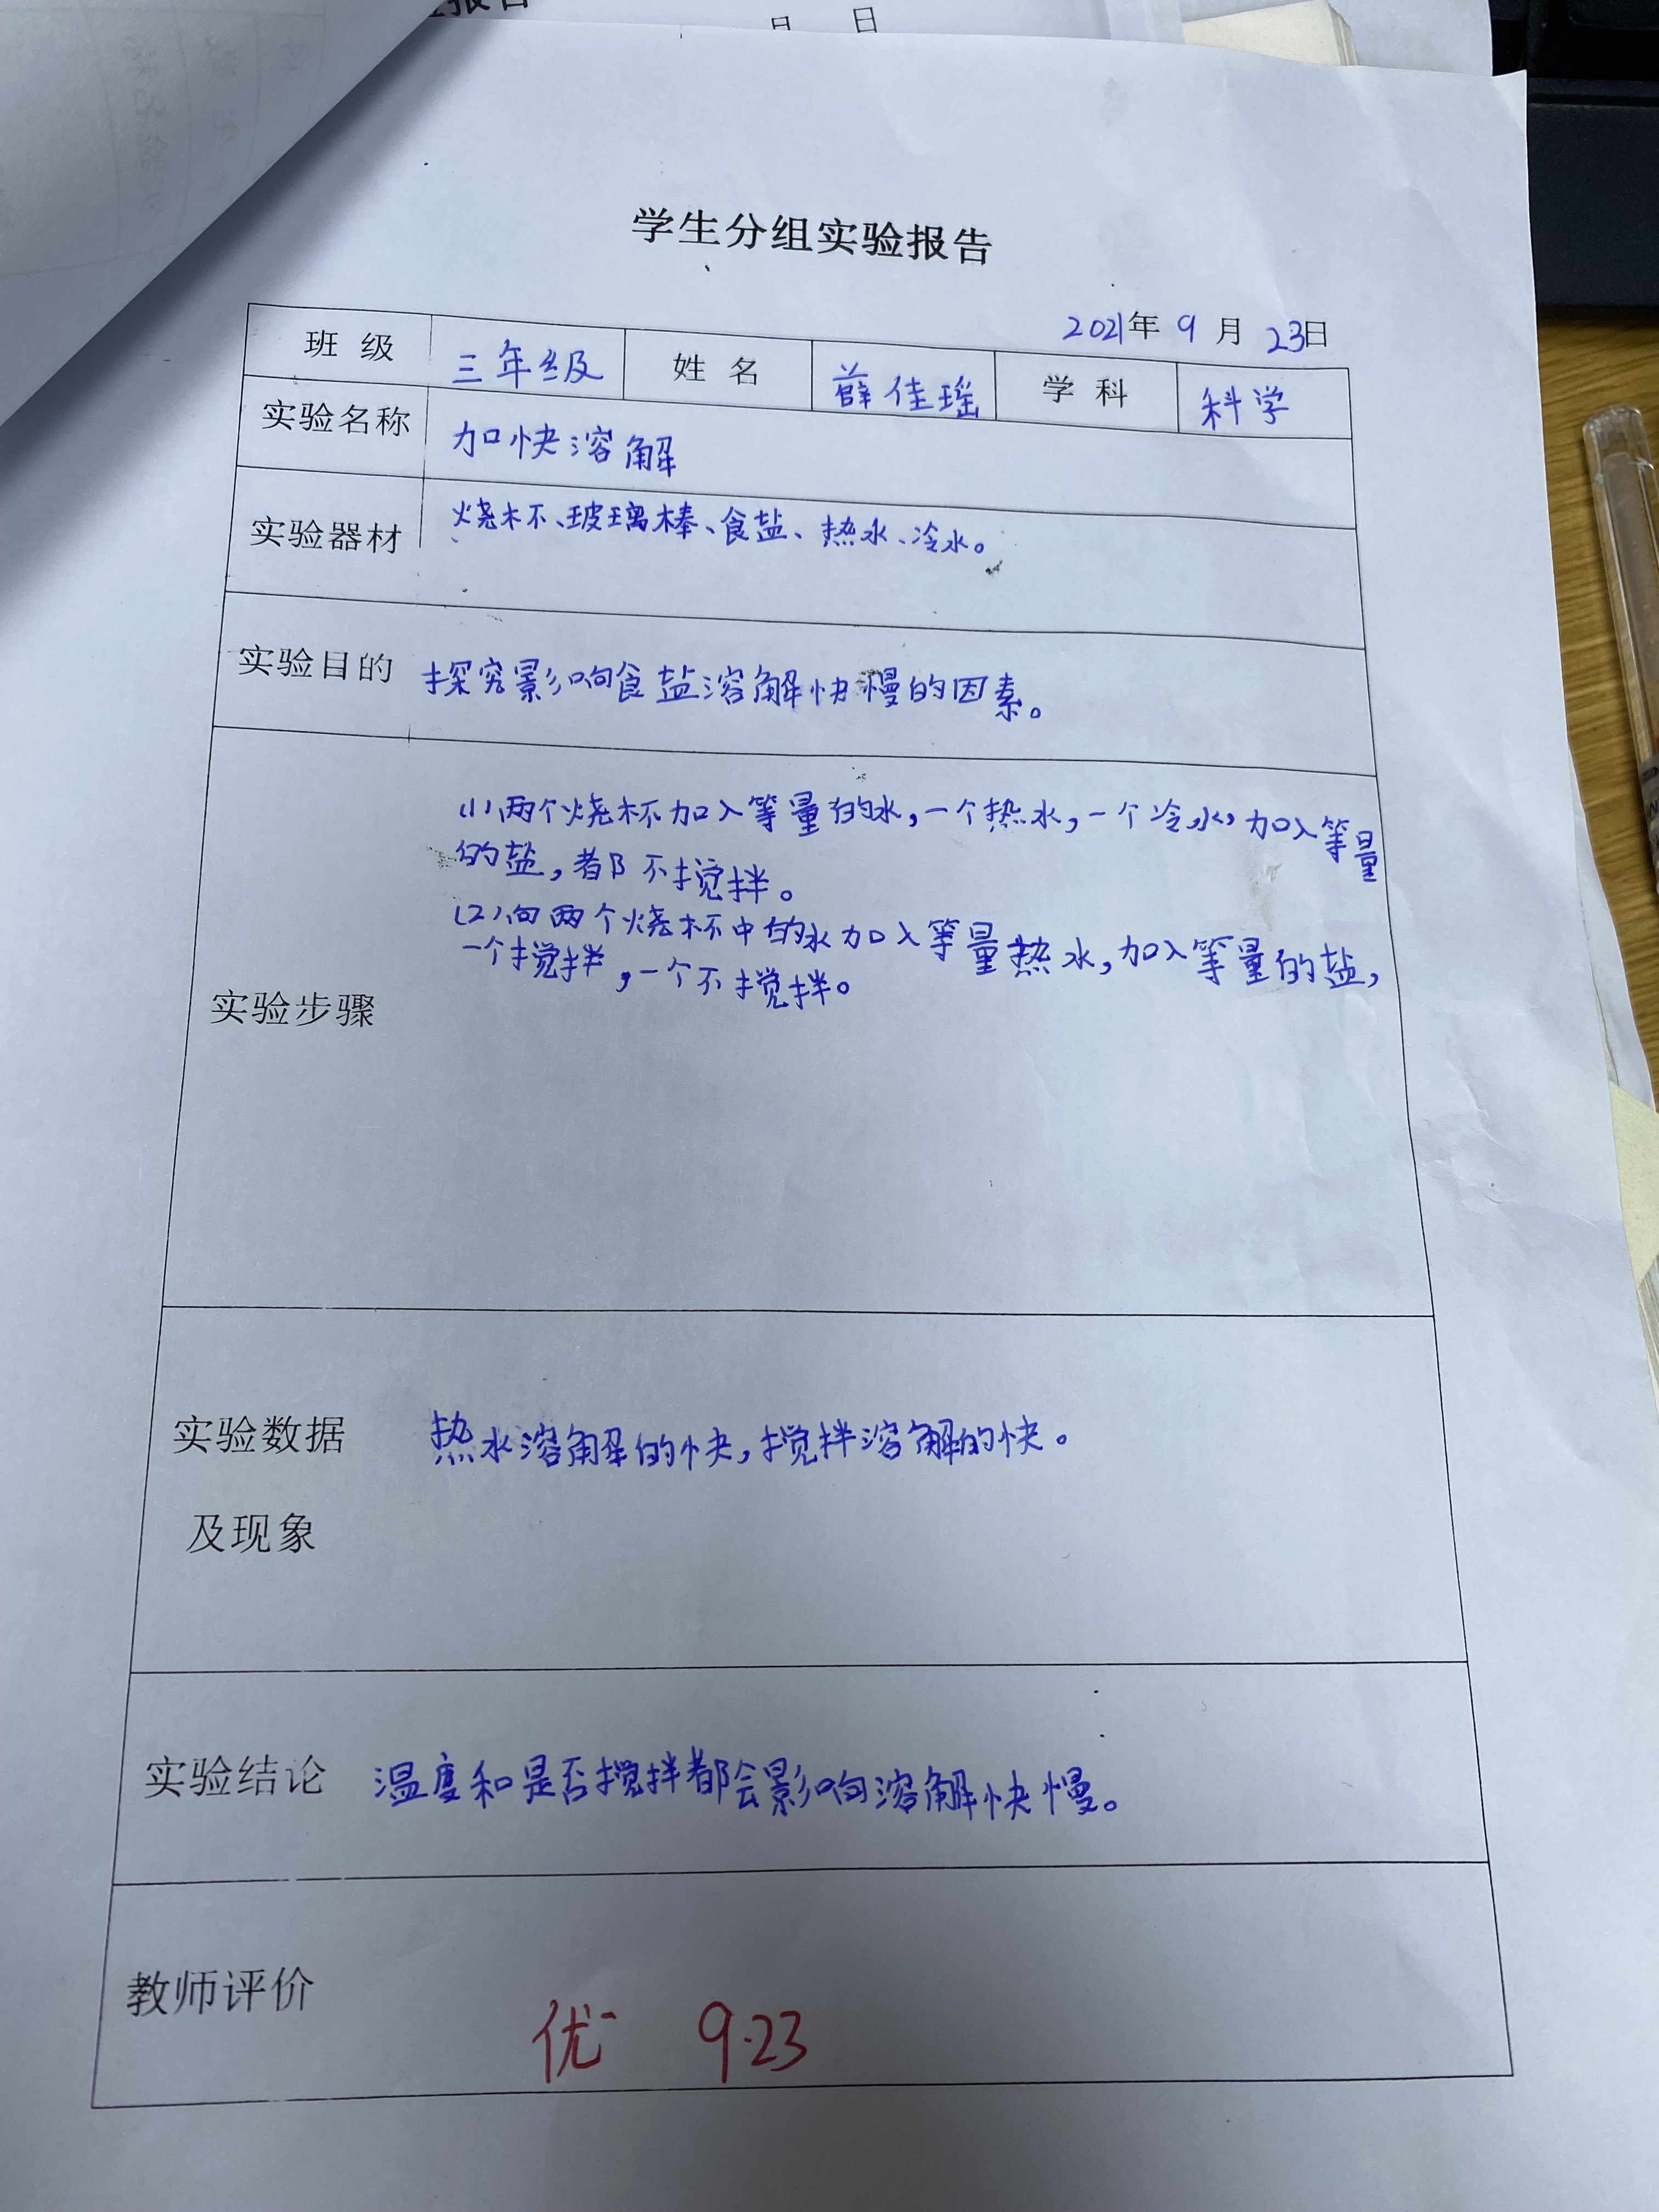 月 日
学生分组实验报告
2021年 9 月 23日
班 级 三年级 姓 名 薛佳瑶 学 科 科学
实验名称 加快溶解
实验器材 烧杯、玻璃棒、食盐、热水、冷水。
实验目的 探究影响食盐溶解快慢的因素。
(1)、两个烧杯加入等量的水,一个热水,一个冷水,加入等量
的盐,都不搅拌。
(2)、向两个烧杯中的水加入等量热水,加入等量的盐,
一个搅拌,一个不搅拌。
实验步骤
实验数据 热水溶解的快,搅拌溶解的快。
及现象
实验结论 温度和是否搅拌都会影响溶解快慢。
教师评价
优 9.23